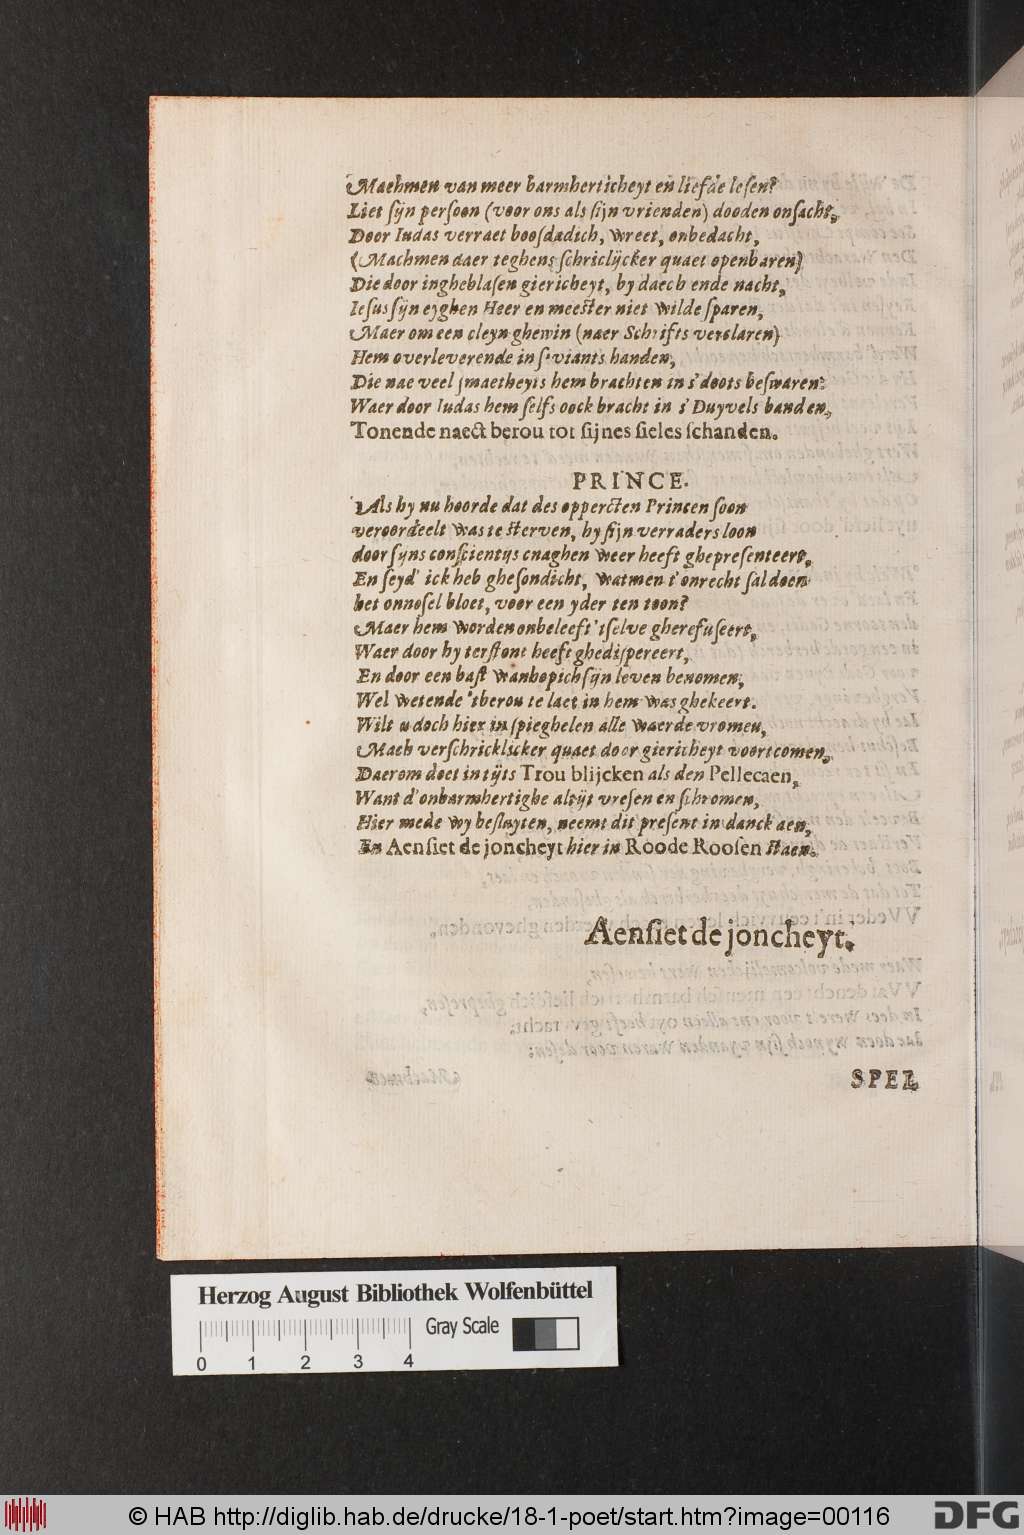 Machmen van meer barmherticheyt en liefde lesen?
Liet sijn persoon (voor ons als sijn vrienden) dooden onsacht,
Door Iudas verraet boosdadich, wreet, onbedacht,
(Machmen daer teghens schriclijcker quaet openbaren)
Die door ingheblasen giericheyt, by daech ende nacht,
Iesus sijn eyghen Heer en meester niet wilde sparen,
Maer om een cleyn ghewin (naer Schrifts verclaren)
Hem overleverende in s'viants handen,
Die nae veel smaetheyts hem brachten in s'doots beswaren:
Waer door Iudas hem selfs oock bracht in s'Duyvels banden,
Tonende naect berou tot sijnes sieles schanden.
PRINCE.
Als hy nu hoorde dat des opperc̃ten Princen soon
veroordeelt was te sterven, hy sijn verraders loon
door sijns conscientijs cnaghen weer heeft ghepresenteert,
En seyd' ick heb ghesondicht, watmen t'onrecht sal doen
het onnosel bloet, voor een yder ten toon?
Maer hem worden onbeleeft 'tselve gherefuseert,
Waer door hy terstont heeft ghedispereert,
En door een bast wanhopich sijn leven benomen,
Wel wetende 'tberou te laet in hem was ghekeert.
Wilt u doch hier in spieghelen alle waerde vromen,
Mach verschricklicker quaet door giericheyt voortcomen,
Daerom doet in tijts Trou blijcken als den Pellecaen,
Want d'onbarmhertighe altijt vresen en schromen,
Hier mede wy besluyten, neemt dit present in danck aen,
En Aensiet de joncheyt hier in Roode Roosen staen.
Aensiet de joncheyt.
SPEL
Herzog August Bibliothek Wolfenbüttel
Gray Scale
0 1 2 3 4
© HAB http://diglib.hab.de/drucke/18-1-poet/start.htm?image=00116
DFG